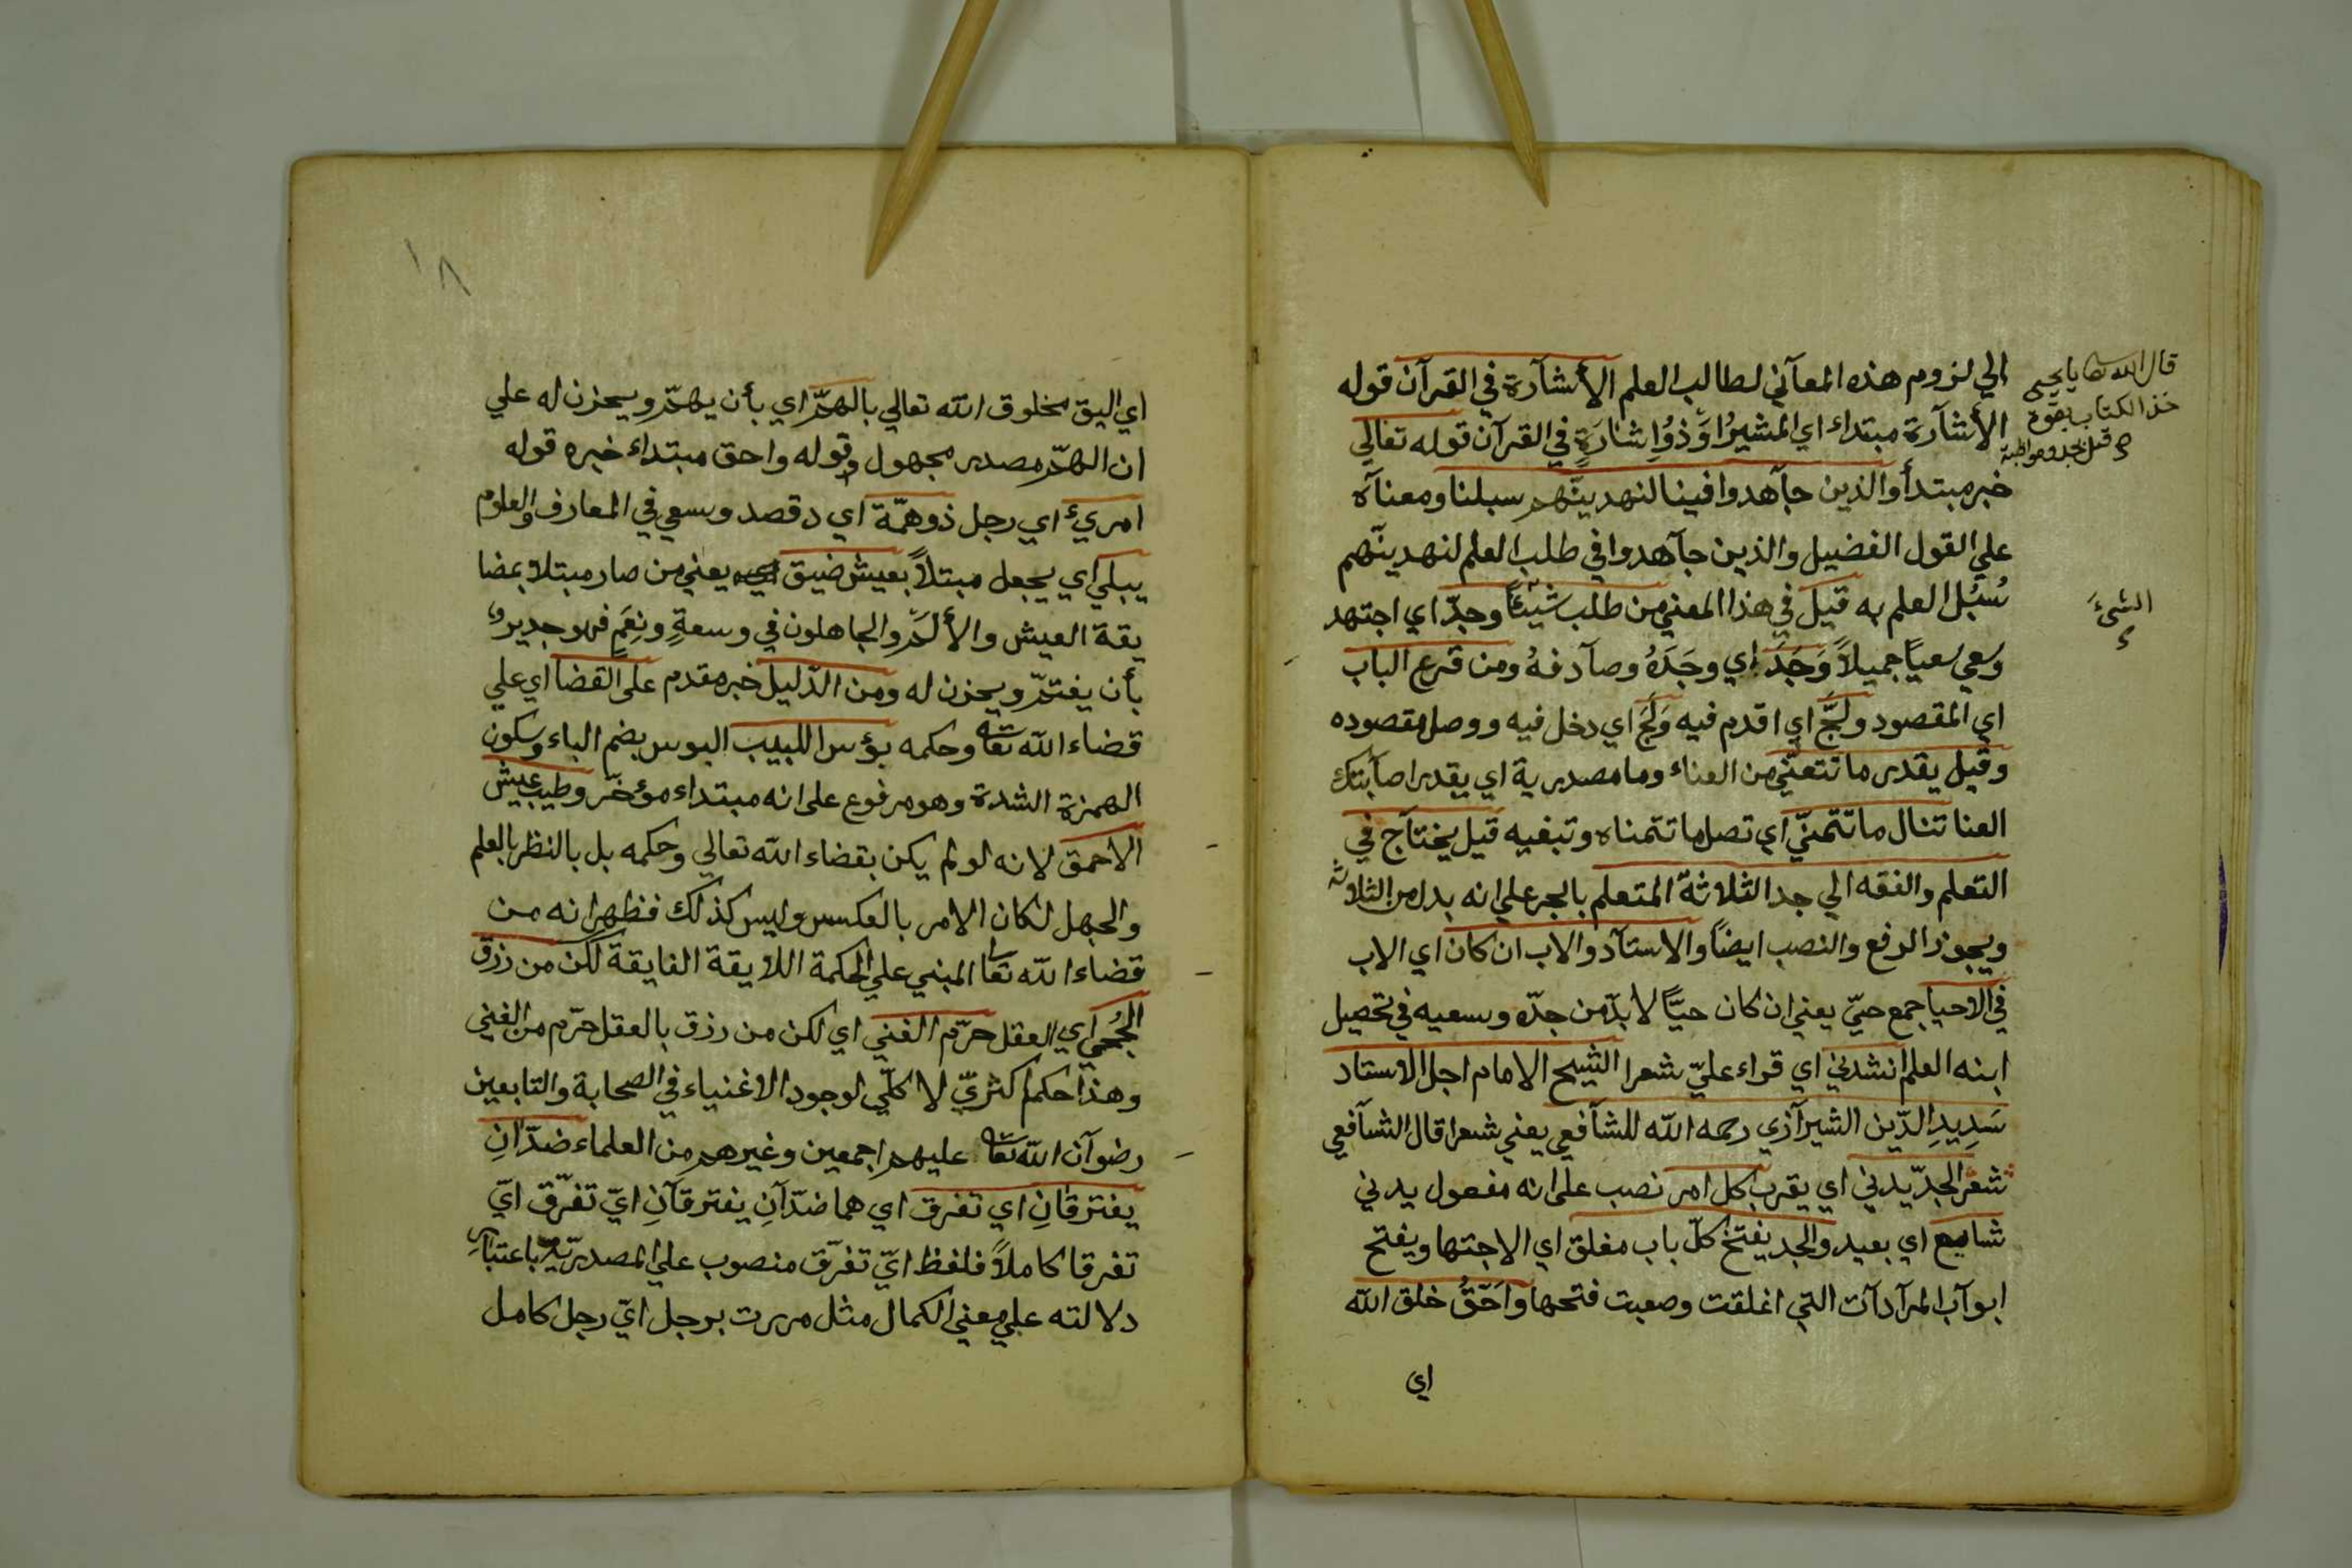 الي لزوم هذه المعآني لطالب العلم الأشآرة في القرآن قوله
الأشآرة مبتداء اي المشيرُ اوَ ذوُاِشارَةٍ في القرآن قوله تعالي
خبر مبتدأ والذين جآهدوا فينا لنهدينّهم سبلنا ومعنآه
علي القول الفضيل والذين جآهدوا في طلب العلم لنهدينّهم
سُبُل العلم به قيل في هذا المعني من طلب شيئًا وجدّ اي اجتهد
وسعي سعيًا جميلاً وَجَدَ اي وجَدَهُ وصآدفهُ ومن قرع الباب
اي المقصود ولَجَّ اي اقدم فيه وَلَجَ اي دخل فيه ووصل مقصوده
وقيل يقدر ما تتعنّي من العناء وما مصدرية اي يقدر اصآبتك
العنا تنال ما تتمنّي اي تصل ما تتمناه وتبغيه قيل يحتآج في
التعلم والفقه الي جد الثلاثة المتعلم بالجر علي انه بدل من الثلاثة
ويجوز الرفع والنصب ايضًا والاستآد والاب ان كان اي الاب
في الاحيا جمع حيّ يعني ان كان حيًّا لا بدّ من جدّه وسعيه في تحصيل
ابنه العلم انشدني اي قراء عليّ شعرا الشيخ الامام اجل الاستاد
سَدِيدِ الدّين الشيرآزي رحمه الله للشآفعي يعني شعرا قال الشآفعي
شعر الجدّ يدني اي يقرب كل امر نصب علي انه مفعول يدني
شاسع اي بعيد والجد يفتح كلّ باب مغلق اي الاجتها ويفتح
ابوآب المرآدآت التي اغلقت وصعبت فتحها وَاَحَقُّ خلق الله
اي
قال الله تعا يا يحيي
خذ الكتاب بقوة
الشئ
١٨
اي اليق مخلوق الله تعالي بالهمّ اي بأن يهتمّ ويحزن له علي
ان الهمّ مصدر مجهول وقوله واحق مبتداء خبره قوله
امرئ اي رجل ذو همّة اي د قصد وسعي في المعارف والعلوم
يبلي اي يجعل مبتلاً بعيش ضيق يعني من صار مبتلا بمضا
يقة العيش والألمّ والجاهلون في وسعةٍ ونِعَمٍ فهو جدير
بأن يغتمّ ويحزن له ومن الدّليل خبر مقدم علي القضا اي علي
قضاء الله تعا وحكمه بؤس اللبيب البوس بضم الباء وسكون
الهمزة الشدة وهو مرفوع على انه مبتداء مؤخّر وطيب عيش
الاحمق لانه لو لم يكن بقضاء الله تعالي وحكمه بل بالنظر بالعلم
والجهل لكان الامر بالعكس وليس كذلك فظهر انه من
قضاء الله تعا المبني علي الحكمة اللايقة الفايقة لكن من رزق
الحُجي اي العقل حرّم الغني اي لكن من رزق بالعقل حرّم من الغني
وهذا حكم اكثريّ لا كلّي لوجود الاغنياء في الصحابة والتابعين
رضوآن الله تعا عليهم اجمعين وغيرهم من العلماء ضدّانِ
يفترقانِ اي تفرق اي هما ضدّآنِ يفترقآنِ ايّ تفرّق ايّ
تفرقا كاملاً فلفظ ايّ تفرّق منصوب علي المصدريّة باعتبار
دلالته علي معني الكمال مثل مررت برجل ايّ رجل كامل